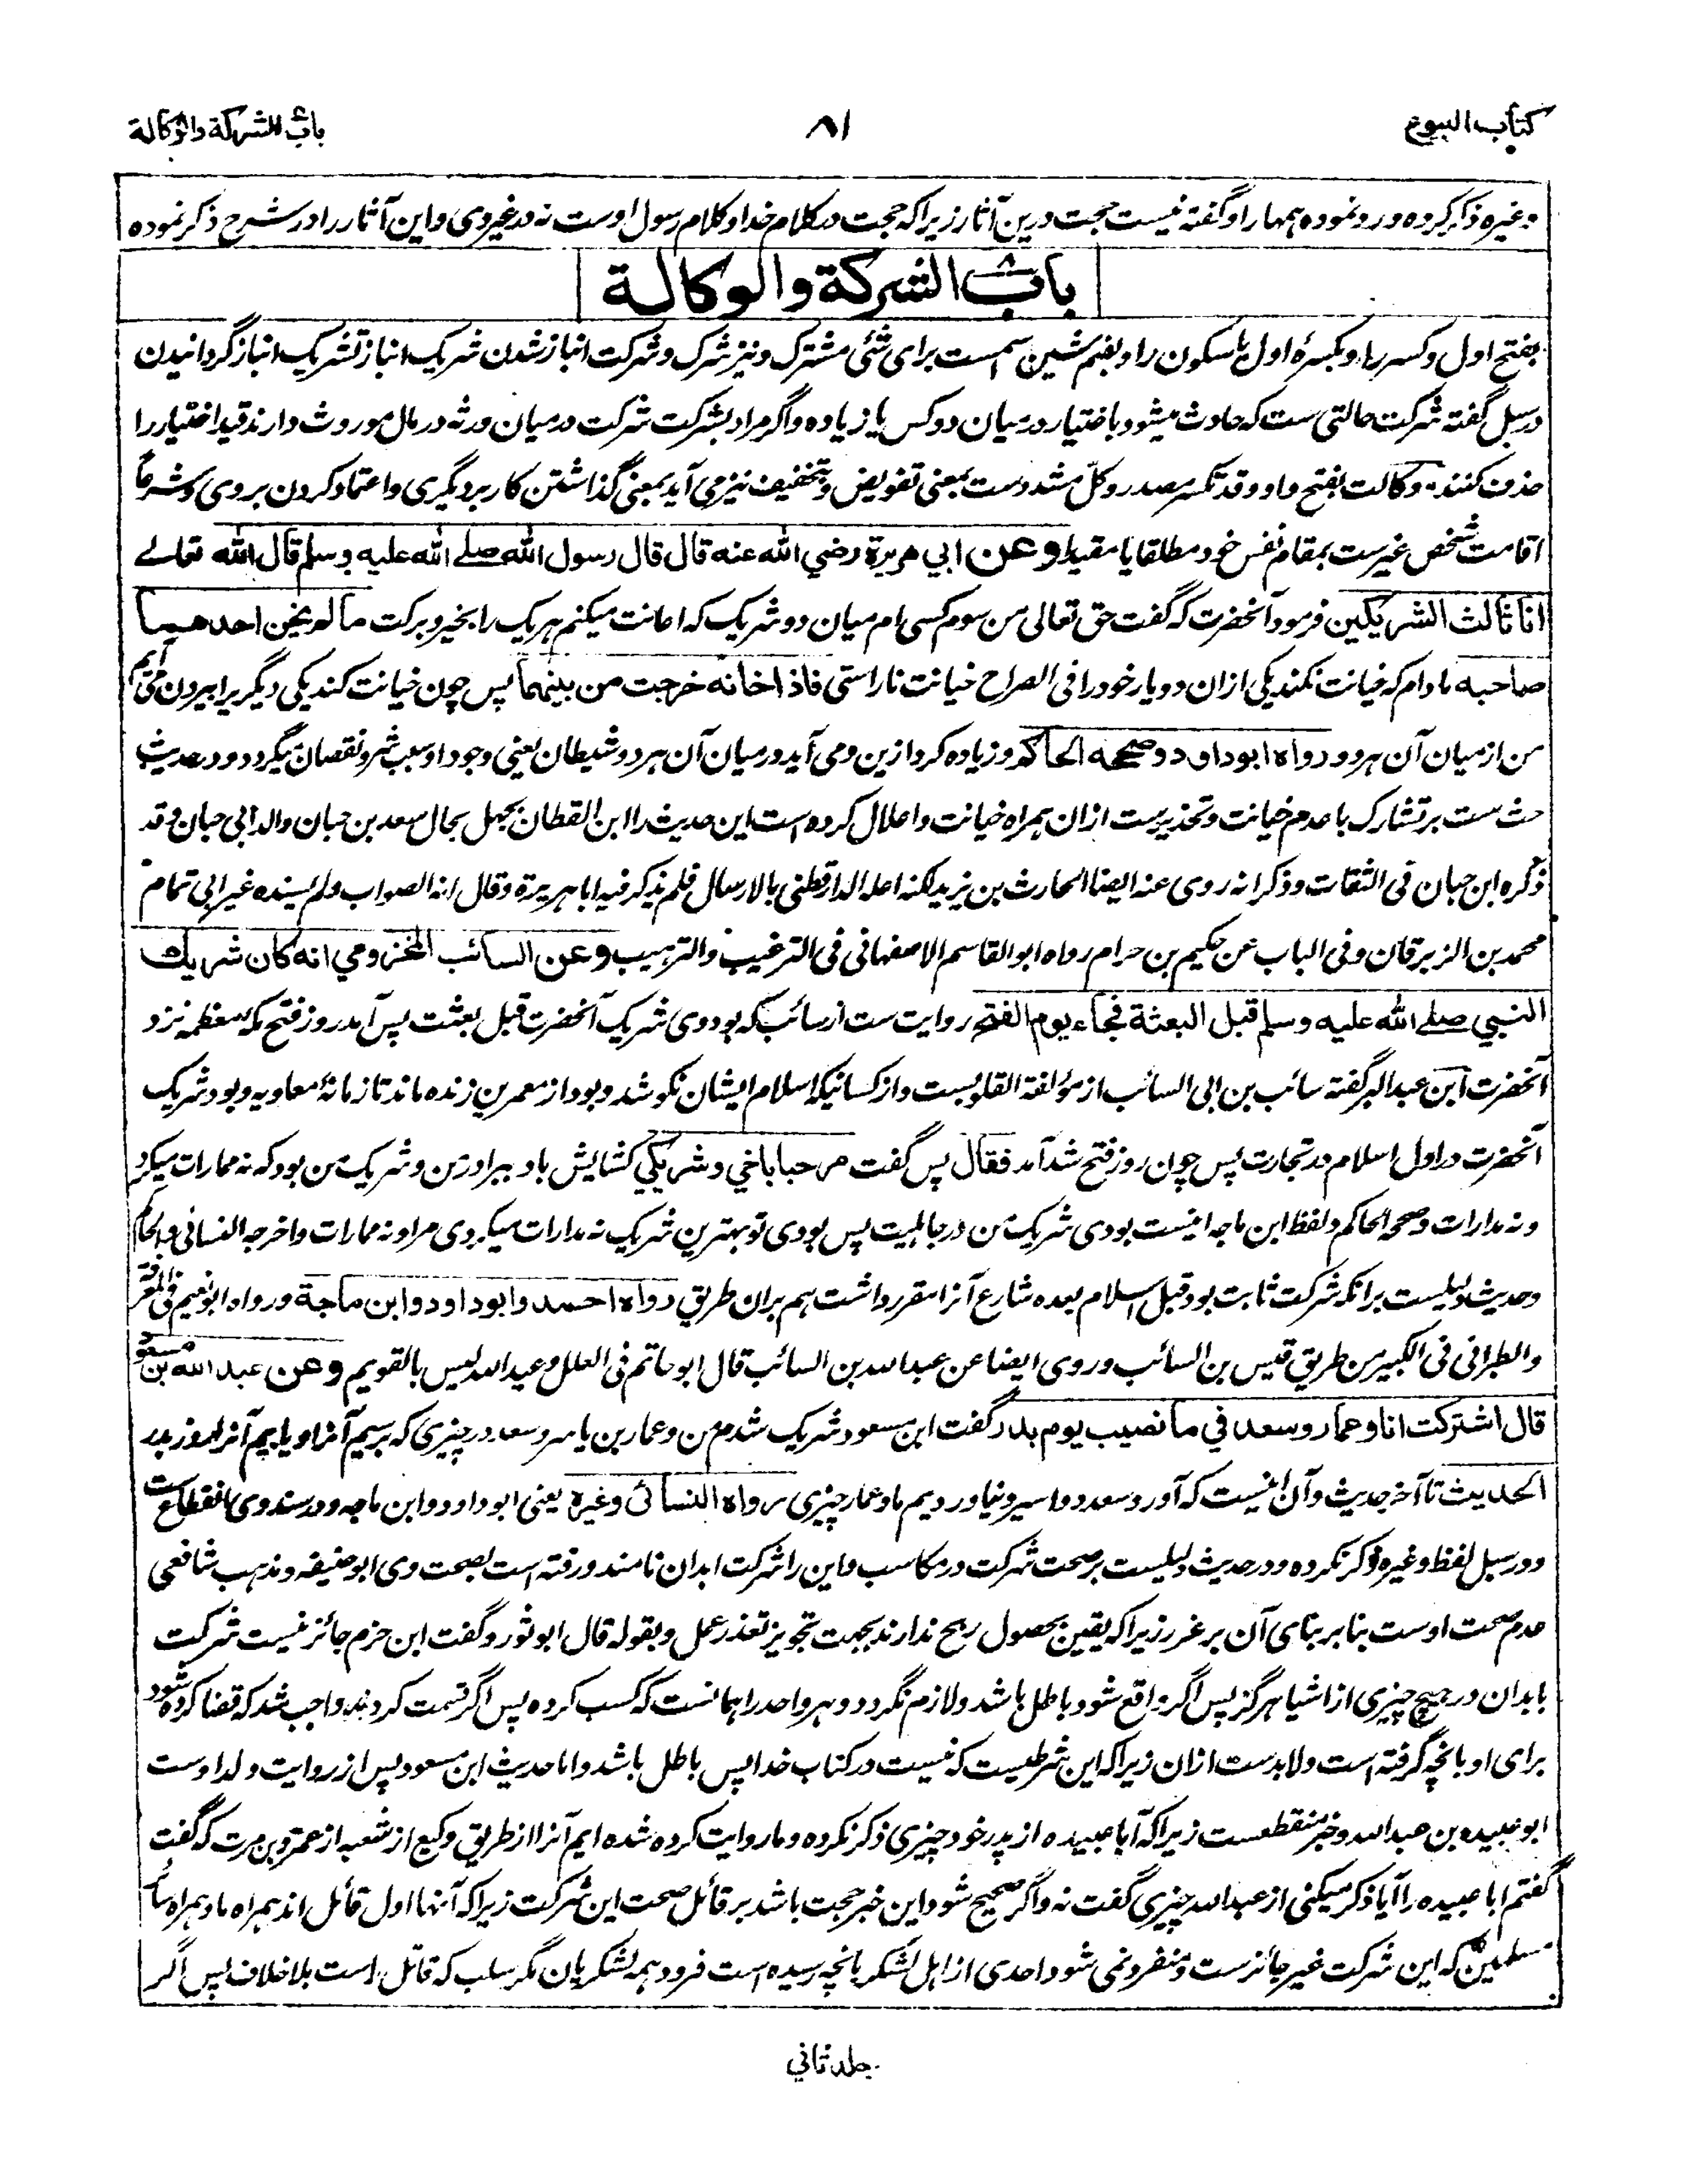 كتاب البيوع
٨١
باب الشركة والوكالة
وغيره ذکر کرده ورد نموده همها را و گفته نیست حجت درین آثار زیرا که حجت در کلام خدا و کلام رسول اوست نه در غیر وی و این آثار را در شرح ذکر نموده
باب الشركة والوكالة
بفتح اول و کسر را و بکسرۂ اول با سکون را و بضم شین اسم ست برای شئی مشترک و نیز شرک و شرکت انباز شدن شریک انباز تشریک انباز گردانیدن
در سبل گفته شرکت حالتی ست که حادث میشود باختیار در میان دو کس یا زیاده و اگر مراد بشرکت شرکت در میان ورثه در مال موروث دارند قید اختیار را
حذف کنند. وکالت بفتح واو و قد تکسر مصدر وکّل مشدد ست بمعنی تفویض و بتخفیف نیز می آید بمعنی گذاشتن کار بر دیگری و اعتماد کردن بر وی و شرعاً
اقامت شخص غیر ست بمقام نفس خود مطلقا یا مقیدا وعن ابي هريرة رضي الله عنه قال قال رسول الله صلے الله عليه وسلم قال الله تعالے
انا ثالث الشريكين فرمود آنحضرت که گفت حق تعالی من سوم کسی ام میان دو شریک که اعانت میکنم هر یک را بخیر و برکت ما لم يخن احدهما
صاحبه مادام که خیانت نکند یکی ازان دو یار خود را فی الصراح خیانت ناراستی فاذا خانه خرجت من بينهما پس چون خیانت کند یکی دیگریرا بیرون می آیم
من از میان آن هر دو رواه ابوداود وصححه الحاكم وزیاده کرد ازین ومی آید در میان آن هر دو شیطان یعنی وجود او سبب شر و نقصان میگردد و در حدیث
حث ست بر تشارک با عدم خیانت و تحذیرست ازان همراه خیانت و اعلال کرده است این حدیث را ابن القطان بجهل بحال سعد بن حبان والد ابی حبان و قد
ذکره ابن حبان فی الثقات وذکر انه روی عنه ایضا الحارث بن یزید لکنه اعله الدارقطنی بالارسال فلم یذکر فیه ابا هریرة وقال انه الصواب ولم یسنده غیر ابی تمام
محمد بن الزبرقان وفی الباب عن حکیم بن حرام رواه ابو القاسم الاصفهانی فی الترغیب والترهیب وعن السائب المخزومي انه كان شريك
النبي صلے الله عليه وسلم قبل البعثة فجاء يوم الفتح روایت ست از سائب که بود وی شریک آنحضرت قبل بعثت پس آمد روز فتح مکه معظمه نزد
آنحضرت ابن عبد البر گفته سائب بن ابی السائب از مؤلفة القلوبست و از کسانیکه اسلام ایشان نکو شد و بود از معمرین زنده ماند تا زمانۂ معاویه و بود شریک
آنحضرت در اول اسلام در تجارت پس چون روز فتح شد آمد فقال پس گفت مرحبا باخي وشريكي کشایش باد ببرادر من و شریک من بود که نه ممارات میکرد
و نه مدارات وصححه الحاکم ولفظ ابن ماجه اینست بودی شریک من در جاهلیت پس بودی تو بهترین شریک نه مدارات میکردی مرا و نه ممارات واخرجه النسائی والحاکم
وحدیث دلیلست برانکه شرکت ثابت بود قبل اسلام بعده شارع آنرا مقرر داشت هم بران طریق رواه احمد وابوداود وابن ماجة ورواه ابونعیم فی المعرفة
والطبرانی فی الکبیر من طریق قیس بن السائب وروی ایضا عن عبدالله بن السائب قال ابوحاتم فی العلل وعبدالله لیس بالقویم وعن عبد الله بن مسعود
قال اشتركت انا وعمار وسعد في ما نصيب يوم بدر گفت ابن مسعود شریک شدم من وعمار بن یاسر وسعد در چیزی که برسیم آنرا و یابیم آنرا روز بدر
الحديث تا آخر حدیث وآن اینست که آورد سعد دو اسیر و نیاوردیم ما وعمار چیزی رواه النسائی وغيره یعنی ابوداود وابن ماجه ودر سند وی انقطاع ست
ودر سبل لفظ وغیره ذکر نکرده و در حدیث دلیلست بر صحت شرکت در مکاسب و این را شرکت ابدان نامند و رفته است بصحت وی ابوحنیفه و مذهب شافعی
عدم صحت اوست بنا بر بنای آن بر غرر زیرا که یقین بحصول ربح ندارند بجهت تجویز تعذر عمل وبقوله قال ابوثور و گفت ابن حزم جائز نیست شرکت
بابدان در هیچ چیزی از اشیا هرگز پس اگر واقع شود باطل باشد و لازم نگردد و هر واحد را همانست که کسب کرده پس اگر قسمت کردند واجب شد که قضا کرده شود
برای او بانچه گرفته است ولابدست ازان زیرا که این شرطیست که نیست در کتاب خدا پس باطل باشد واما حدیث ابن مسعود پس از روایت ولد اوست
ابوعبیده بن عبدالله وخبر منقطعست زیرا که ابا عبیده از پدر خود چیزی ذکر نکرده و ما روایت کرده شده ایم آنرا از طریق وکیع از شعبه از عمرو بن مرت که گفت
گفتم ابا عبیده را آیا ذکر میکنی از عبدالله چیزی گفت نه و اگر صحیح شود این خبر حجت باشد بر قائل صحت این شرکت زیرا که آنها اول قائل اند همراه ما و همراه سائر
مسلمین که این شرکت غیر جائزست و منفرد نمی شود احدی از اهل لشکر بانچه رسیده است فرود همه لشکریان مگر سلب که قاتل راست بلا خلاف پس اگر
جلد ثاني